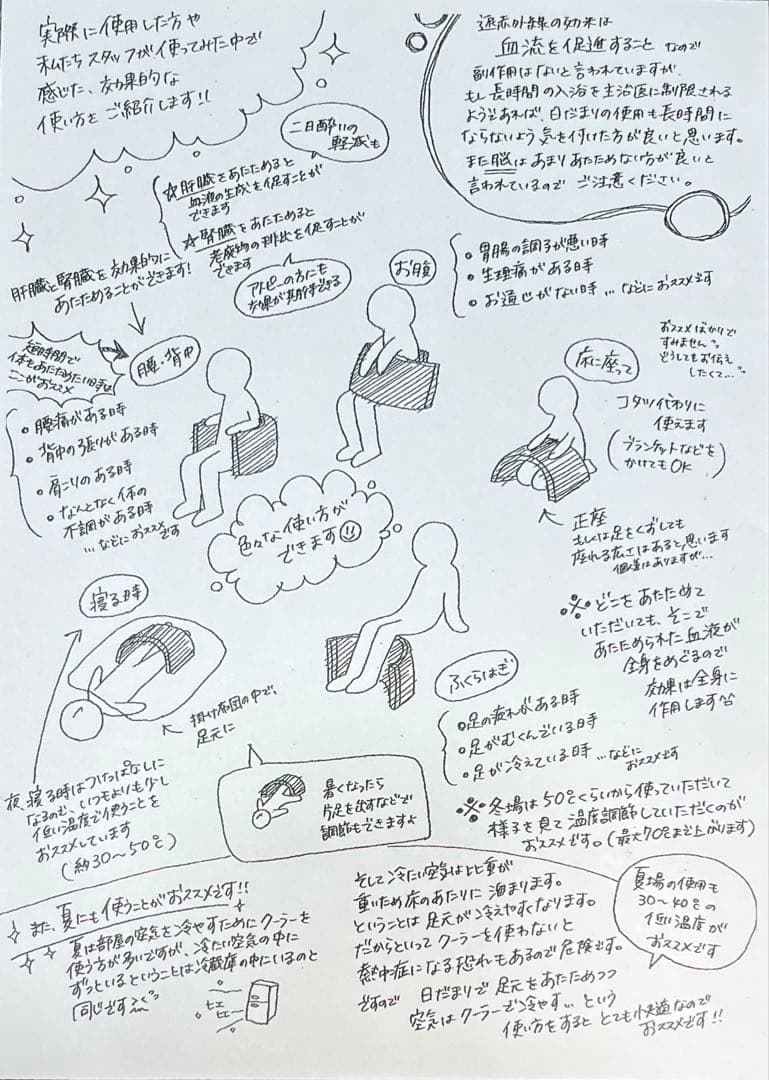 実際に使用した方や
私たちスタッフが使ってみた中で
感じた、効果的な
使い方をご紹介します!!
遠赤外線の効果は
血流を促進すること なので
副作用はないと言われていますが、
もし長時間の入浴を主治医に制限される
ようであれば、日だまりの使用も長時間に
ならないよう気を付けた方が良いと思います。
また脳はあまりあたためない方が良いと
言われているので ご注意ください。
二日酔いの
軽減も
☆肝臓をあたためると
血液の生成を促すことが
できます
☆腎臓をあたためると
老廃物の排出を促すことが
できます
アトピーの方にも
効果が期待できる
肝臓と腎臓を効果的に
あたためることができます!
短時間で
体をあたためたい時は
ここがおススメ
腰・背中
・腰痛がある時
・背中の張りがある時
・肩こりのある時
・なんとなく体の
不調がある時
…などにおススメです
お腹
・胃腸の調子が悪い時
・生理痛がある時
・お通じがない時 …などにおススメです
おススメばかりで
すみません
どうしてもお伝え
したくて…
床に座って
コタツ代わりに
使えます
(ブランケットなどを
かけてもOK)
正座
もしくは足をくずしても
座れる広さはあると思います
個人差はありますが…
色々な使い方が
できます
※どこをあたためて
いただいても、そこで
あたためられた血液が
全身をめぐるので
効果は全身に
作用します^^
寝る時
掛け布団の中で、
足元に
夜、寝る時はつけっぱなしに
なるので、いつもよりも少し
低い温度で使うことを
おススメしています
(約30〜50℃)
暑くなったら
片足を出すなどで
調節もできますよ
ふくらはぎ
・足の疲れがある時
・足がむくんでいる時
・足が冷えている時 …などに
おススメです
※冬場は50℃くらいから使っていただいて
様子を見て温度調節していただくのが
おススメです。(最大70℃まで上がります)
また、夏にも使うことがおススメです!!
夏は部屋の空気を冷やすためにクーラーを
使う方が多いですが、冷たい空気の中に
ずっといるということは冷蔵庫の中にいるのと
同じです
ヒエ
ヒエ
そして冷たい空気は比重が
重いため床のあたりに溜まります。
ということは足元が冷えやすくなります。
だからといってクーラーを使わないと
熱中症になる恐れもあるので危険です。
ですので 日だまりで足元をあたためつつ
空気はクーラーで冷やす… という
使い方をすると とても快適なので
おススメです!!
夏場の使用も
30〜40℃の
低い温度が
おススメです